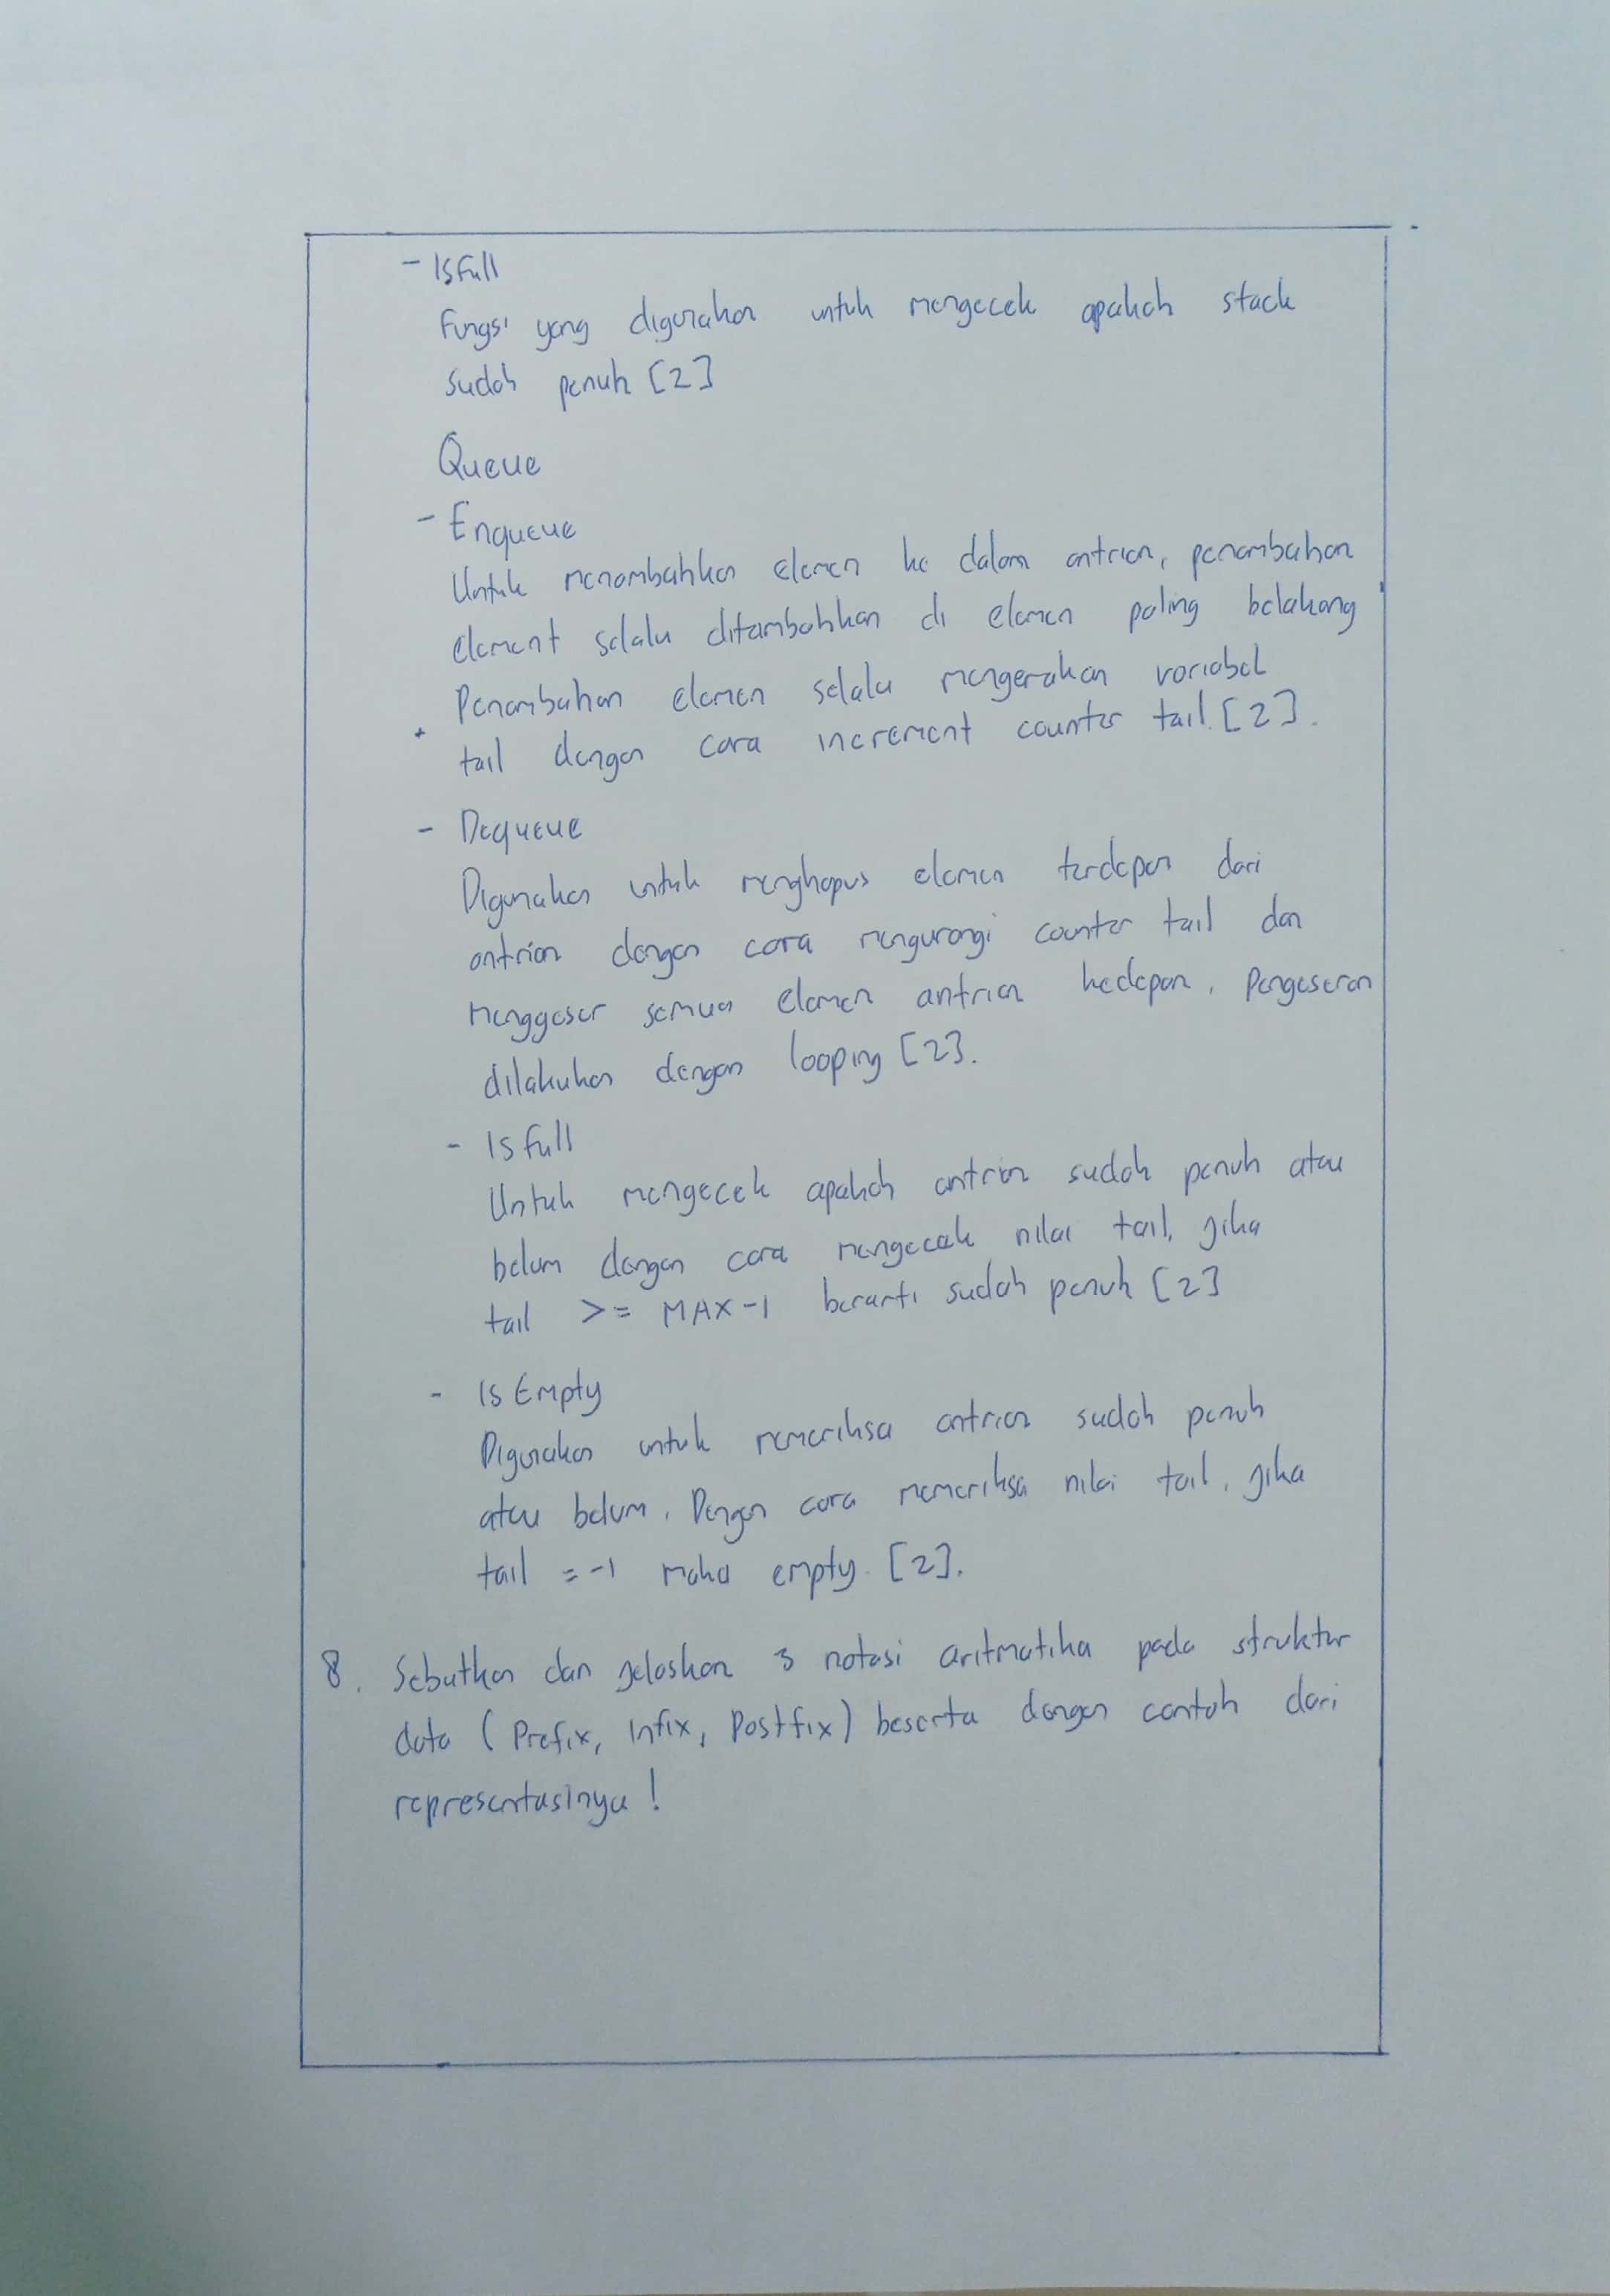 - Isfull
Fungsi yang digunakan untuk mengecek apakah stack
sudah penuh [2]
Queue
- Enqueue
Untuk menambahkan elemen ke dalam antrian, penambahan
element selalu ditambahkan di elemen paling belakang
Penambahan elemen selalu mengerakan variabel
tail dengan cara increment counter tail. [2].
- Dequeue
Digunakan untuk menghapus elemen terdepan dari
antrian dengan cara mengurangi counter tail dan
menggeser semua elemen antrian kedepan. Pengeseran
dilakukan dengan looping [2].
- Is full
Untuk mengecek apakah antrian sudah penuh atau
belum dengan cara mengecek nilai tail, jika
tail >= MAX-1 berarti sudah penuh [2]
- Is Empty
Digunakan untuk memeriksa antrian sudah penuh
atau belum. Dengan cara memeriksa nilai tail, jika
tail = -1 maka empty. [2].
8. Sebutkan dan jelaskan 3 notasi aritmatika pada struktur
data (Prefix, Infix, Postfix) beserta dengan contoh dari
representasinya!